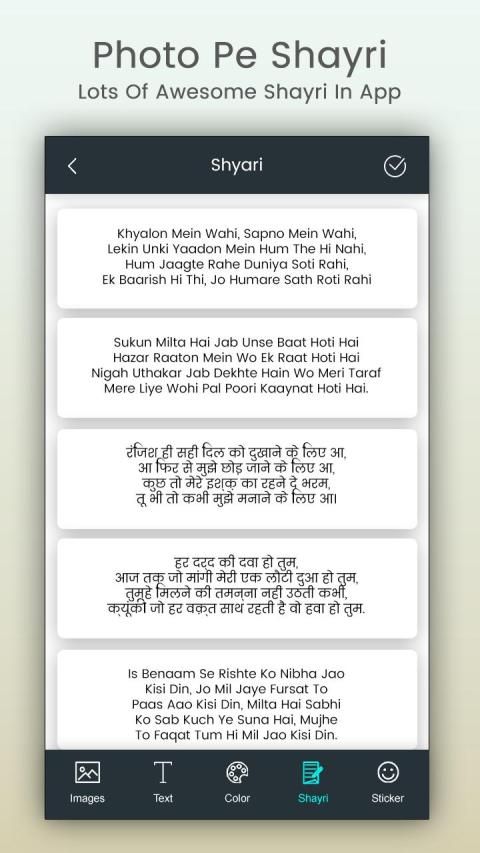 Photo Pe Shayri
Lots Of Awesome Shayri In App
Shyari
Khyalon Mein Wahi, Sapno Mein Wahi,
Lekin Unki Yaadon Mein Hum The Hi Nahi,
Hum Jaagte Rahe Duniya Soti Rahi,
Ek Baarish Hi Thi, Jo Humare Sath Roti Rahi
Sukun Milta Hai Jab Unse Baat Hoti Hai
Hazar Raaton Mein Wo Ek Raat Hoti Hai
Nigah Uthakar Jab Dekhte Hain Wo Meri Taraf
Mere Liye Wohi Pal Poori Kaaynat Hoti Hai.
रंजिश ही सही दिल को दुखाने के लिए आ,
आ फिर से मुझे छोड़ जाने के लिए आ,
कुछ तो मेरे इश्क़ का रहने दे भरम,
तू भी तो कभी मुझे मनाने के लिए आ।
हर दर्द की दवा हो तुम,
आज तक जो मांगी मेरी एक लौटी दुआ हो तुम,
तुम्हे मिलने की तमन्ना नही उठती कभी,
क्यूंकी जो हर वक़्त साथ रहती है वो हवा हो तुम.
Is Benaam Se Rishte Ko Nibha Jao
Kisi Din, Jo Mil Jaye Fursat To
Paas Aao Kisi Din, Milta Hai Sabhi
Ko Sab Kuch Ye Suna Hai, Mujhe
To Faqat Tum Hi Mil Jao Kisi Din.
Images Text Color Shayri Sticker